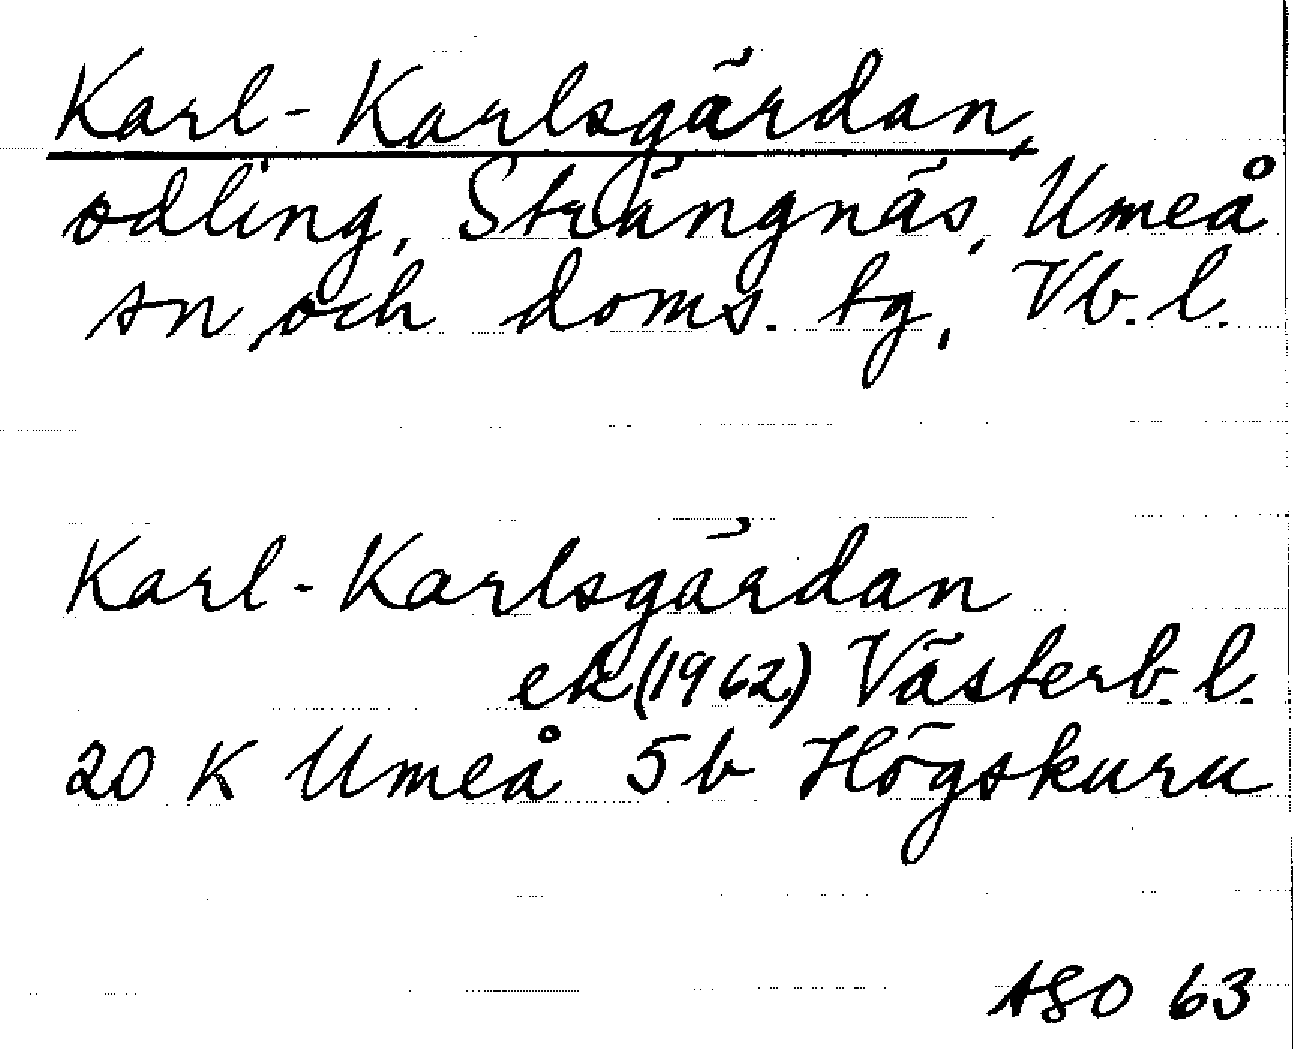 Karl-Karlsgärdan,
odling, Strängnäs, Umeå
sn och doms. tg, Vb. l.
Karl-Karlsgärdan
ek (1962) Västerb. l.
20 K Umeå 5b Högskuru
ASO 63